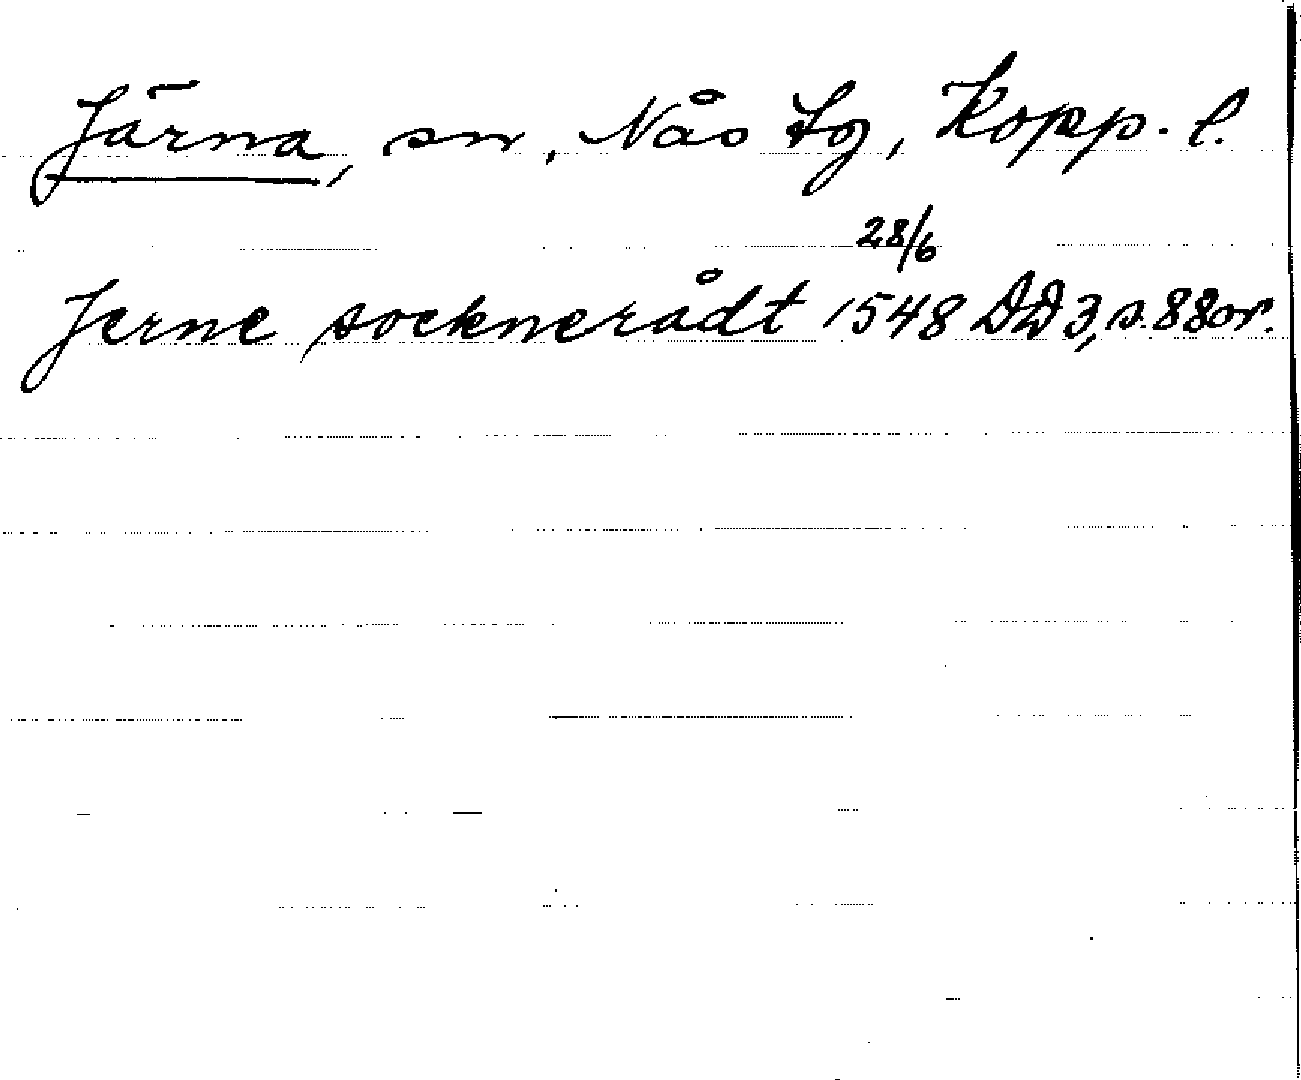 Järna, sn, Nås tg, Kopp. l.
28/6
Jerne socknerådt 1548 DD 3, s. 88 or.